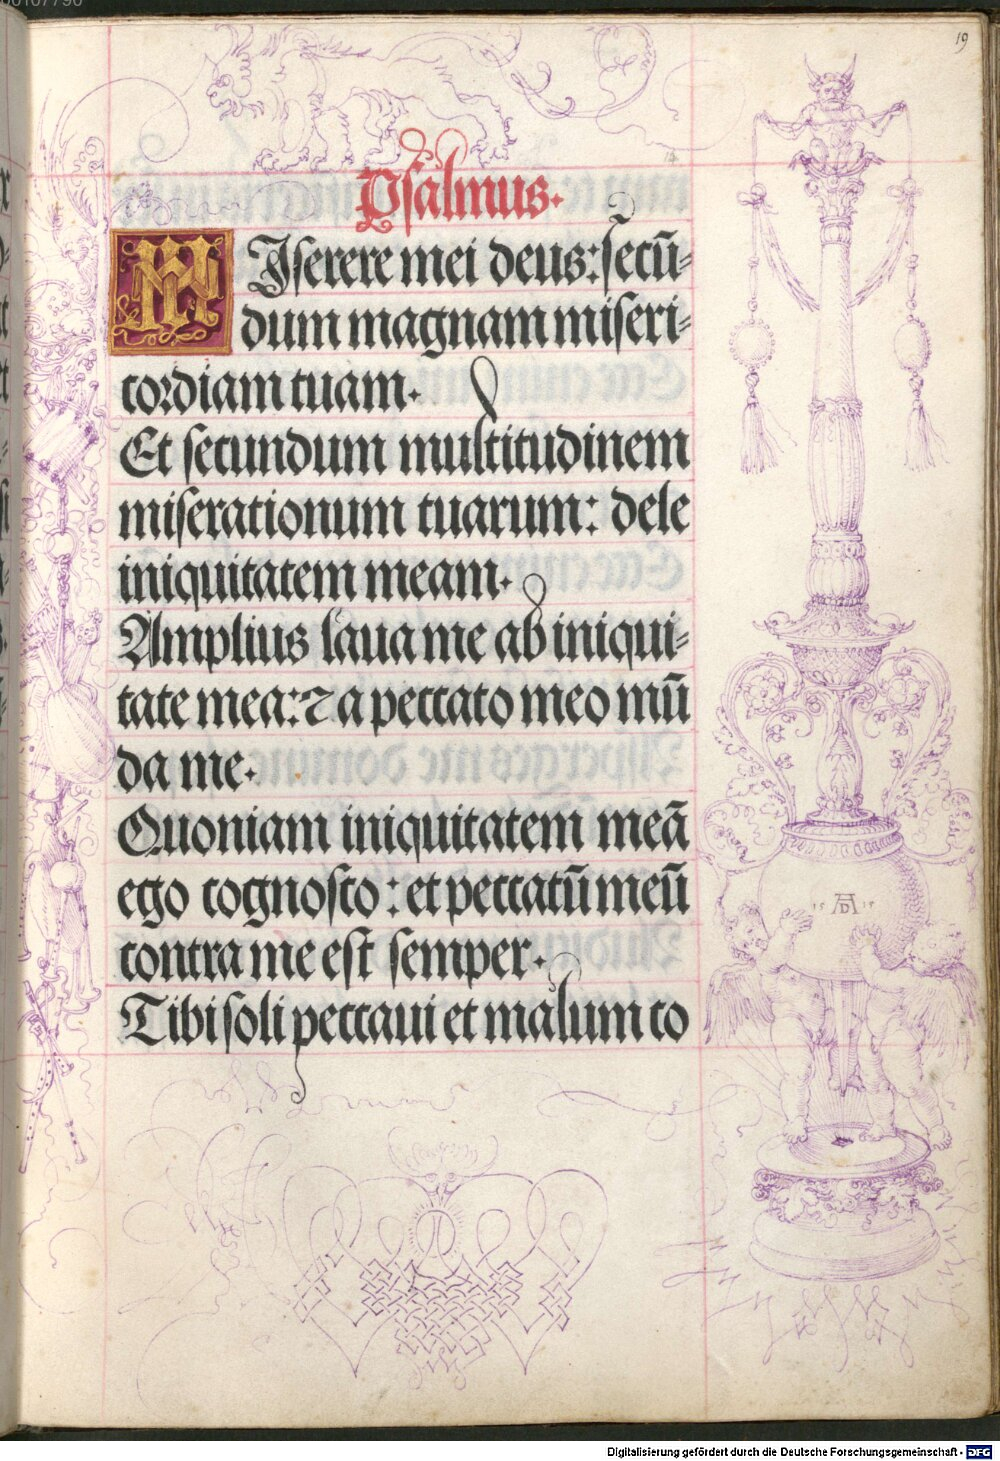 00107790
19
Psalmus.
MIserere mei deus: secū-
dum magnam miseri-
cordiam tuam.
Et secundum multitudinem
miserationum tuarum: dele
iniquitatem meam.
Amplius laua me ab iniqui-
tate mea: ⁊ a peccato meo mū
da me.
Quoniam iniquitatem meā
ego cognosco: et peccatū meū
contra me est semper.
Tibi soli peccaui et malum co
15 AD 15
Digitalisierung gefördert durch die Deutsche Forschungsgemeinschaft - DFG